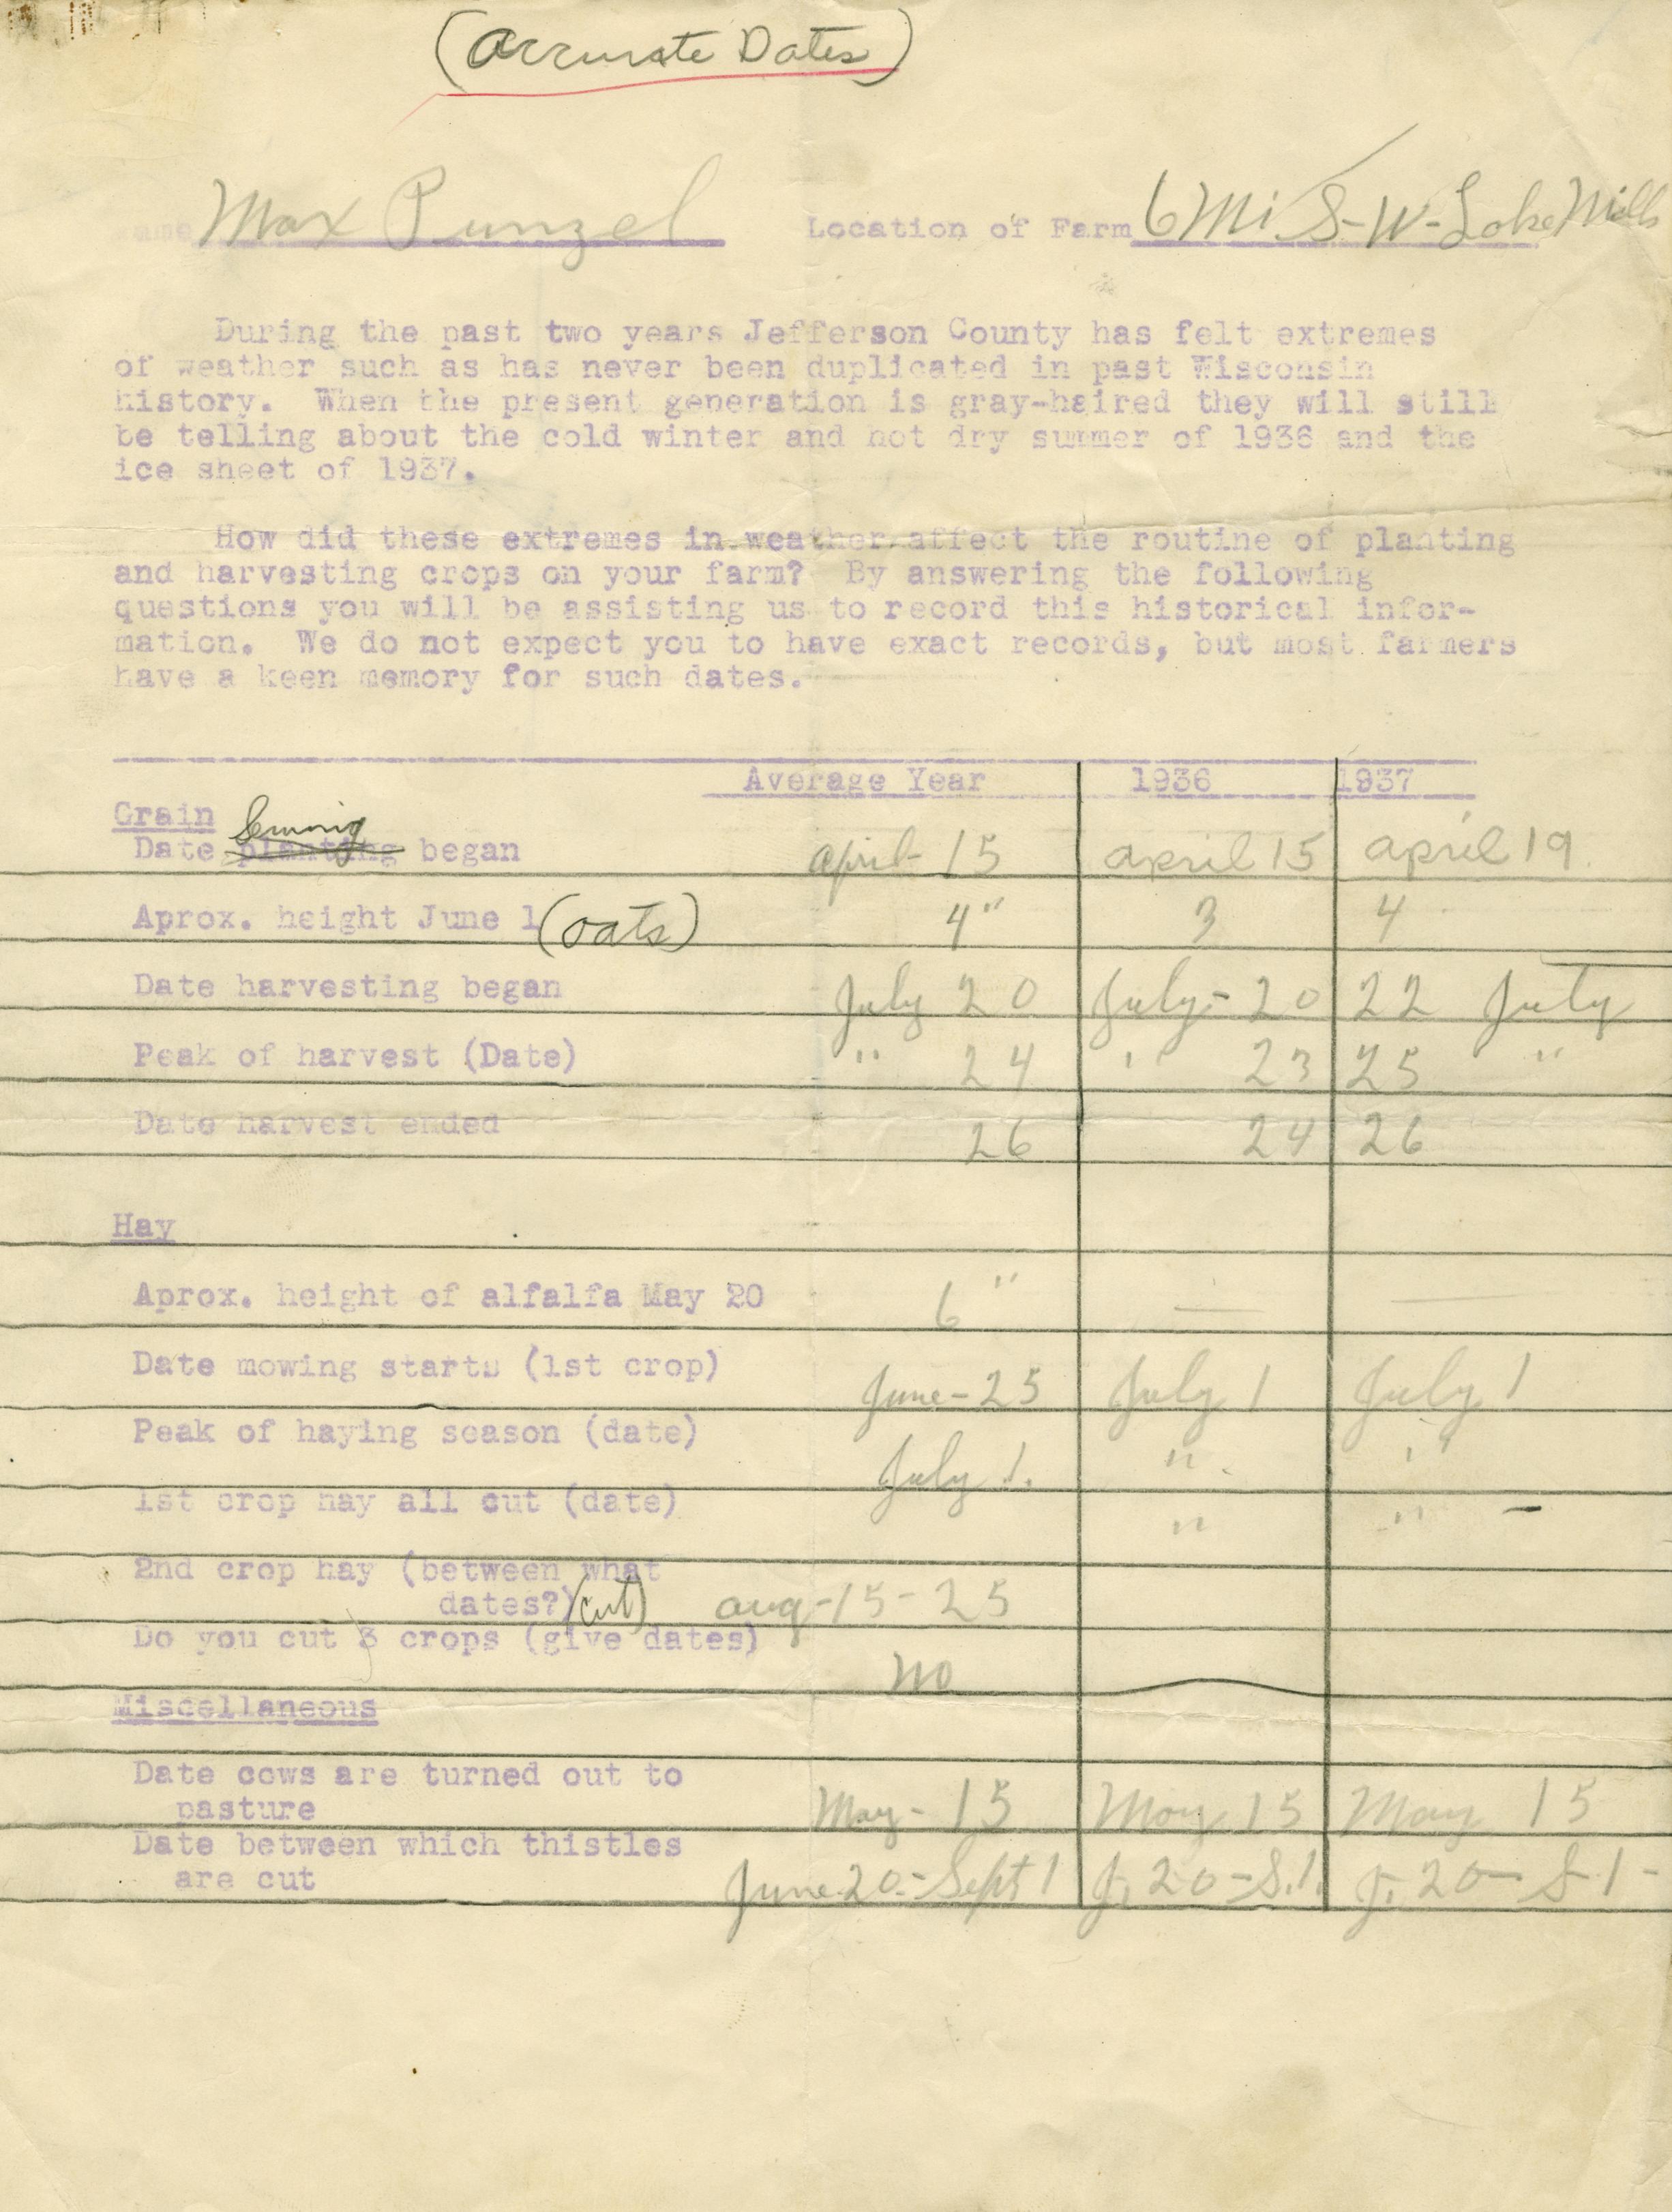 (Accurate Dates)
Name Max Punzel Location of Farm 6 Mi S-W-Lake Mills
During the past two years Jefferson County has felt extremes
of weather such as has never been duplicated in past Wisconsin
history. When the present generation is gray-haired they will still
be telling about the cold winter and hot dry summer of 1936 and the
ice sheet of 1937.
How did these extremes in weather affect the routine of planting
and harvesting crops on your farm? By answering the following
questions you will be assisting us to record this historical infor-
mation. We do not expect you to have exact records, but most farmers
have a keen memory for such dates.
Average Year 1936 1937
Grain
Date planting began april 15 april 15 april 19
Aprox. height June 1 (oats) 4" 3 4
Date harvesting began July 20 July-20 22 July
Peak of harvest (Date) " 24 " 23 25 "
Date harvest ended 26 24 26
Hay
Aprox. height of alfalfa May 20 6" — —
Date mowing starts (1st crop) June-25 July 1 July 1
Peak of haying season (date) July 1. " "
1st crop hay all cut (date) " " -
2nd crop hay (between what
dates?) (cut) aug-15-25
Do you cut 3 crops (give dates)
no
Miscellaneous
Date cows are turned out to
pasture May-15 May 15 May 15
Date between which thistles
are cut June 20-Sept 1 J. 20-S.1. J. 20- S-1-